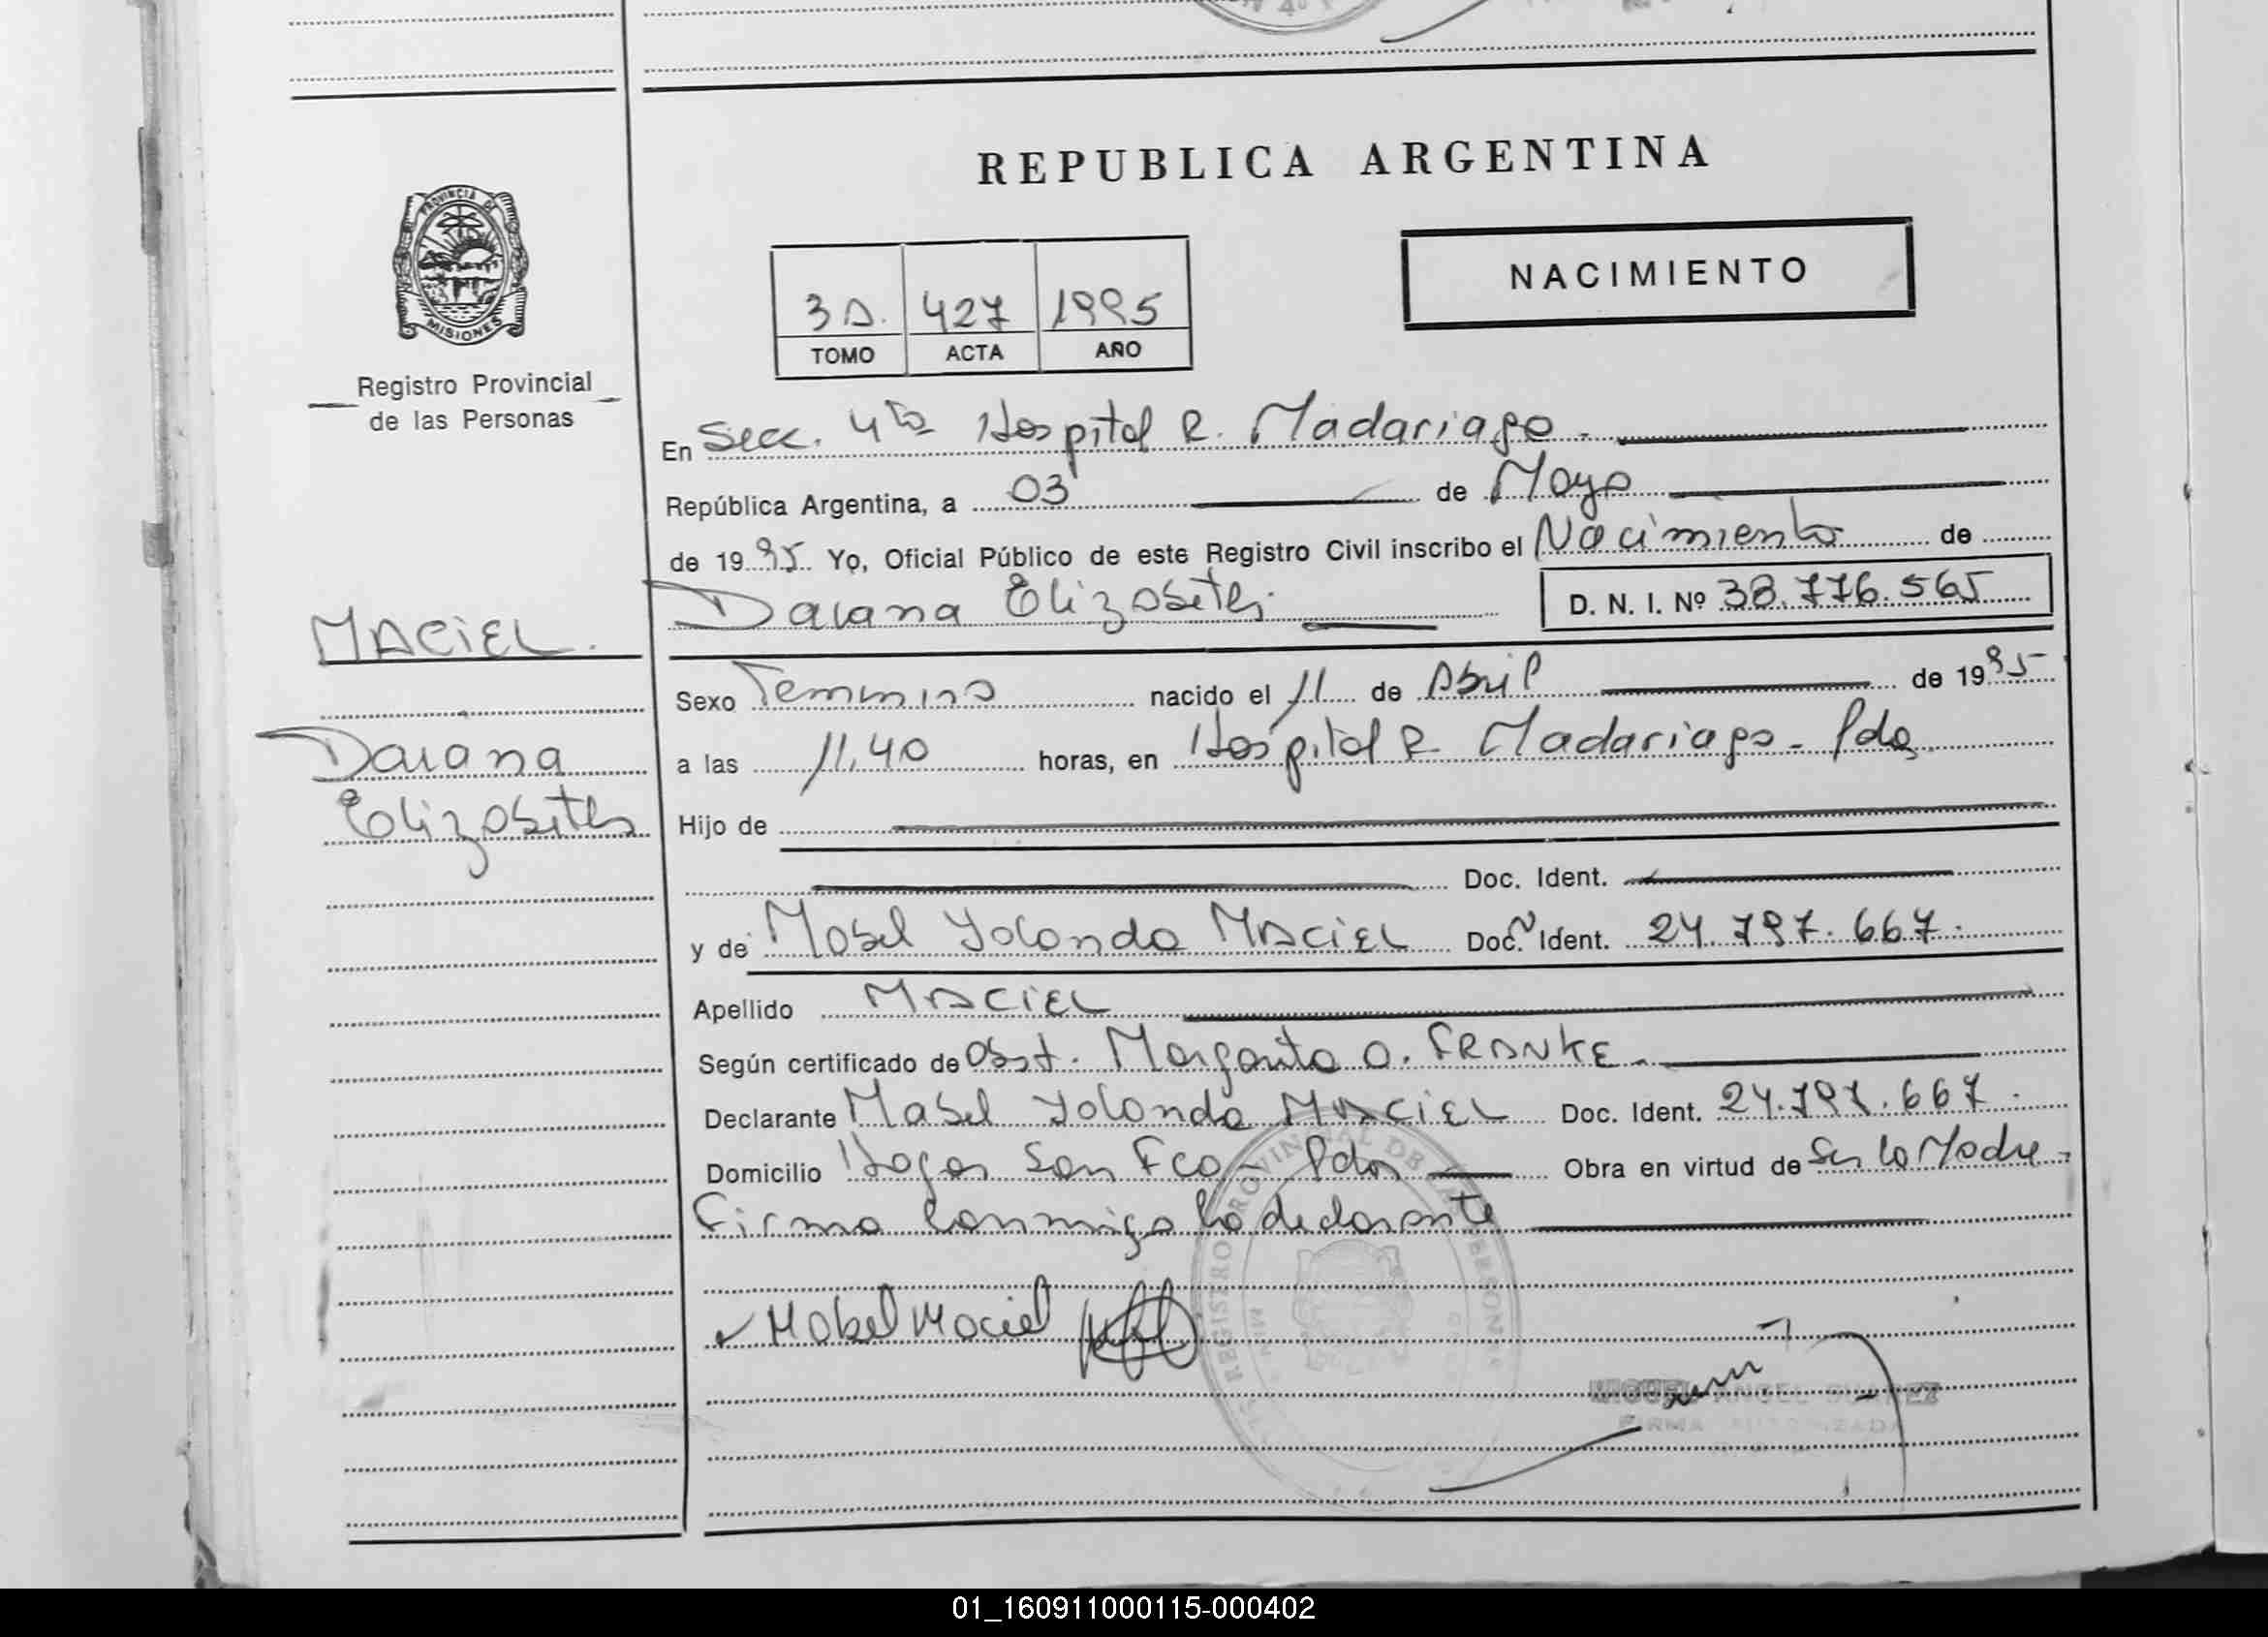 REPUBLICA ARGENTINA
NACIMIENTO
3A. 427 1995
TOMO ACTA AÑO
PROVINCIA DE MISIONES
Registro Provincial
de las Personas
En Secc. 4ta Hospital R. Madariaga.
República Argentina, a 03 de Mayo
de 1995 Yo, Oficial Público de este Registro Civil inscribo el Nacimiento de
Daiana Elizabeth. D. N. I. Nº 38.776.565
MACIEL.
Daiana
Elizabeth
Sexo Femenino nacido el 11 de Abril de 1995
a las 11,40 horas, en Hospital R. Madariaga - Pdas.
Hijo de
Doc. Ident.
y de Mabel Yolanda MACIEL Doc. Ident. 24.797.667.
Apellido MACIEL
Según certificado de Obst. Margarita O. FRANKE.
Declarante Mabel Yolanda MACIEL Doc. Ident. 24.797.667.
Domicilio Hogar San Fco - Pdas Obra en virtud de Ser la Madre.
Firma conmigo la declarante
Mabel Maciel
REGISTRO PROVINCIAL DE LAS PERSONAS
MIGUEL ANGEL SUAREZ
FIRMA AUTORIZADA
01_160911000115-000402